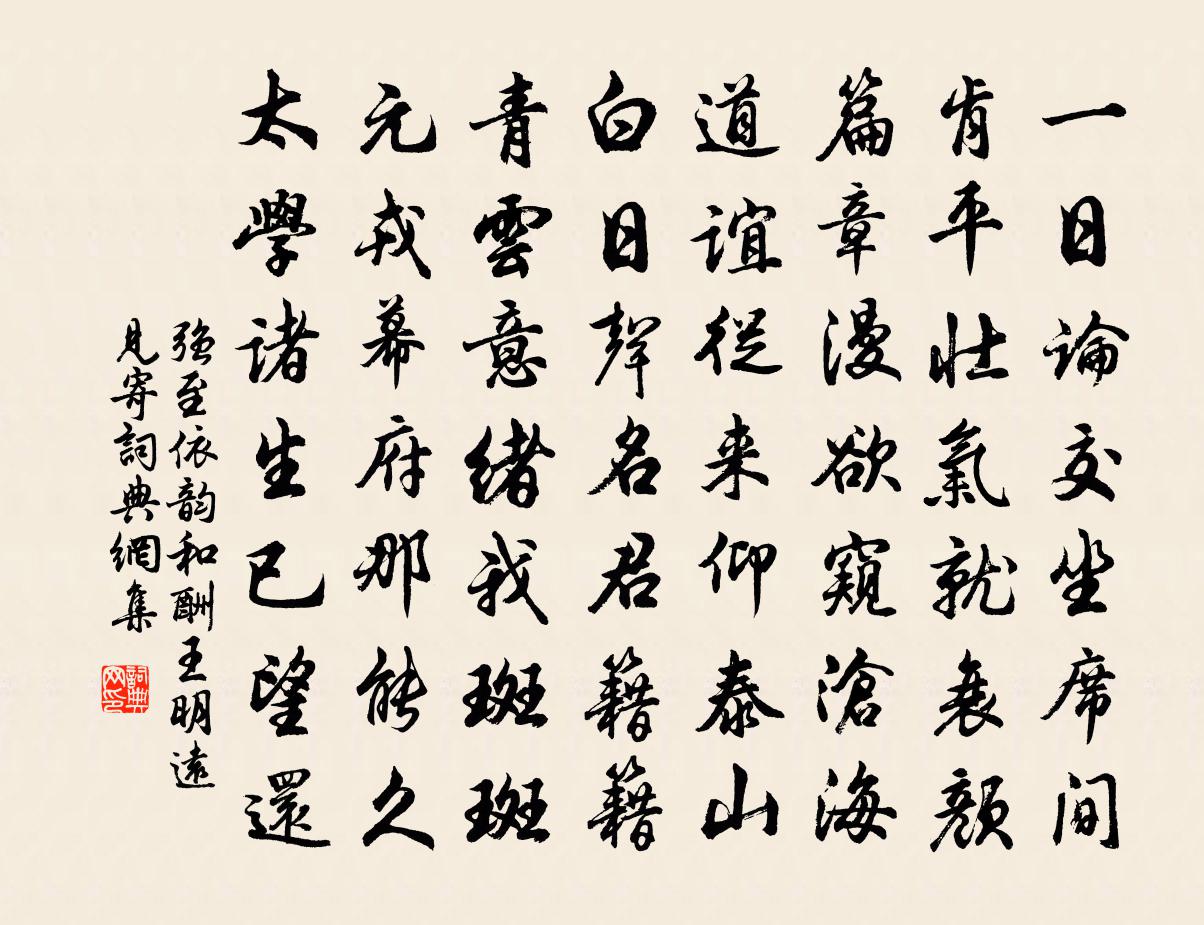 一日論交坐席間
肯平壯氣就衰顏
篇章漫欲窺滄海
道誼從来仰泰山
白日聲名君籍籍
青雲意緒我斑斑
元戎幕府那能久
太學諸生已望還
強至依韵和酬王明遠
見寄詞典網集
詞典
网印